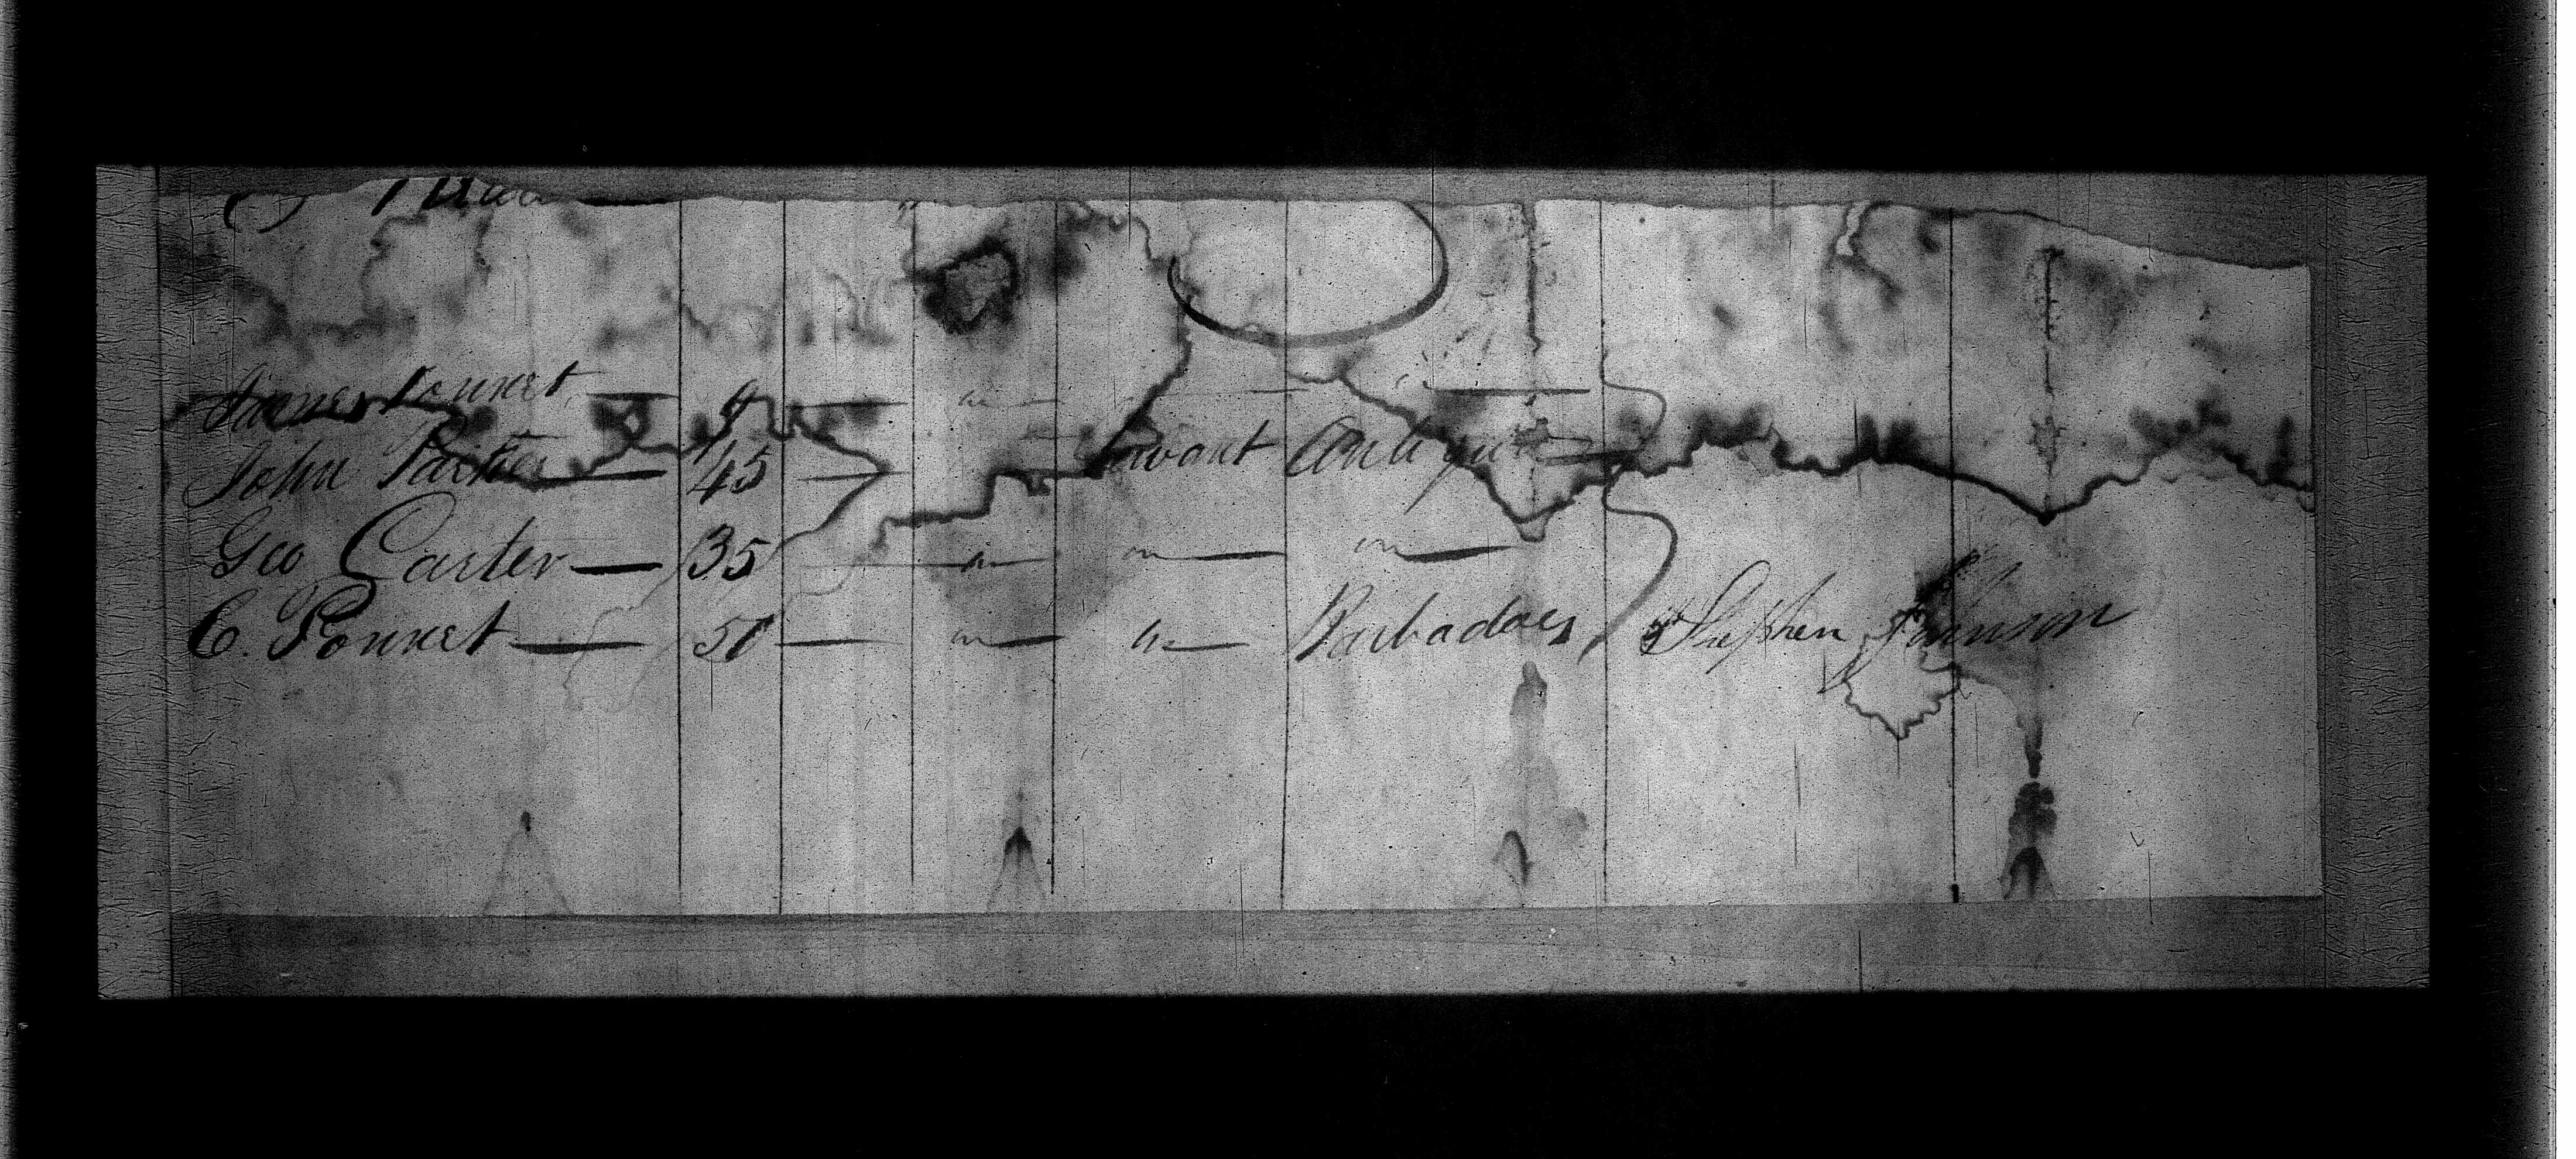 James Ponnet — 9 — " —
John Parker — 45 — Servant Antigua
Geo Carter — 35 — " — " — " —
C. Ponnet — 50 — " — " — Barbadoes Stephen Johnson